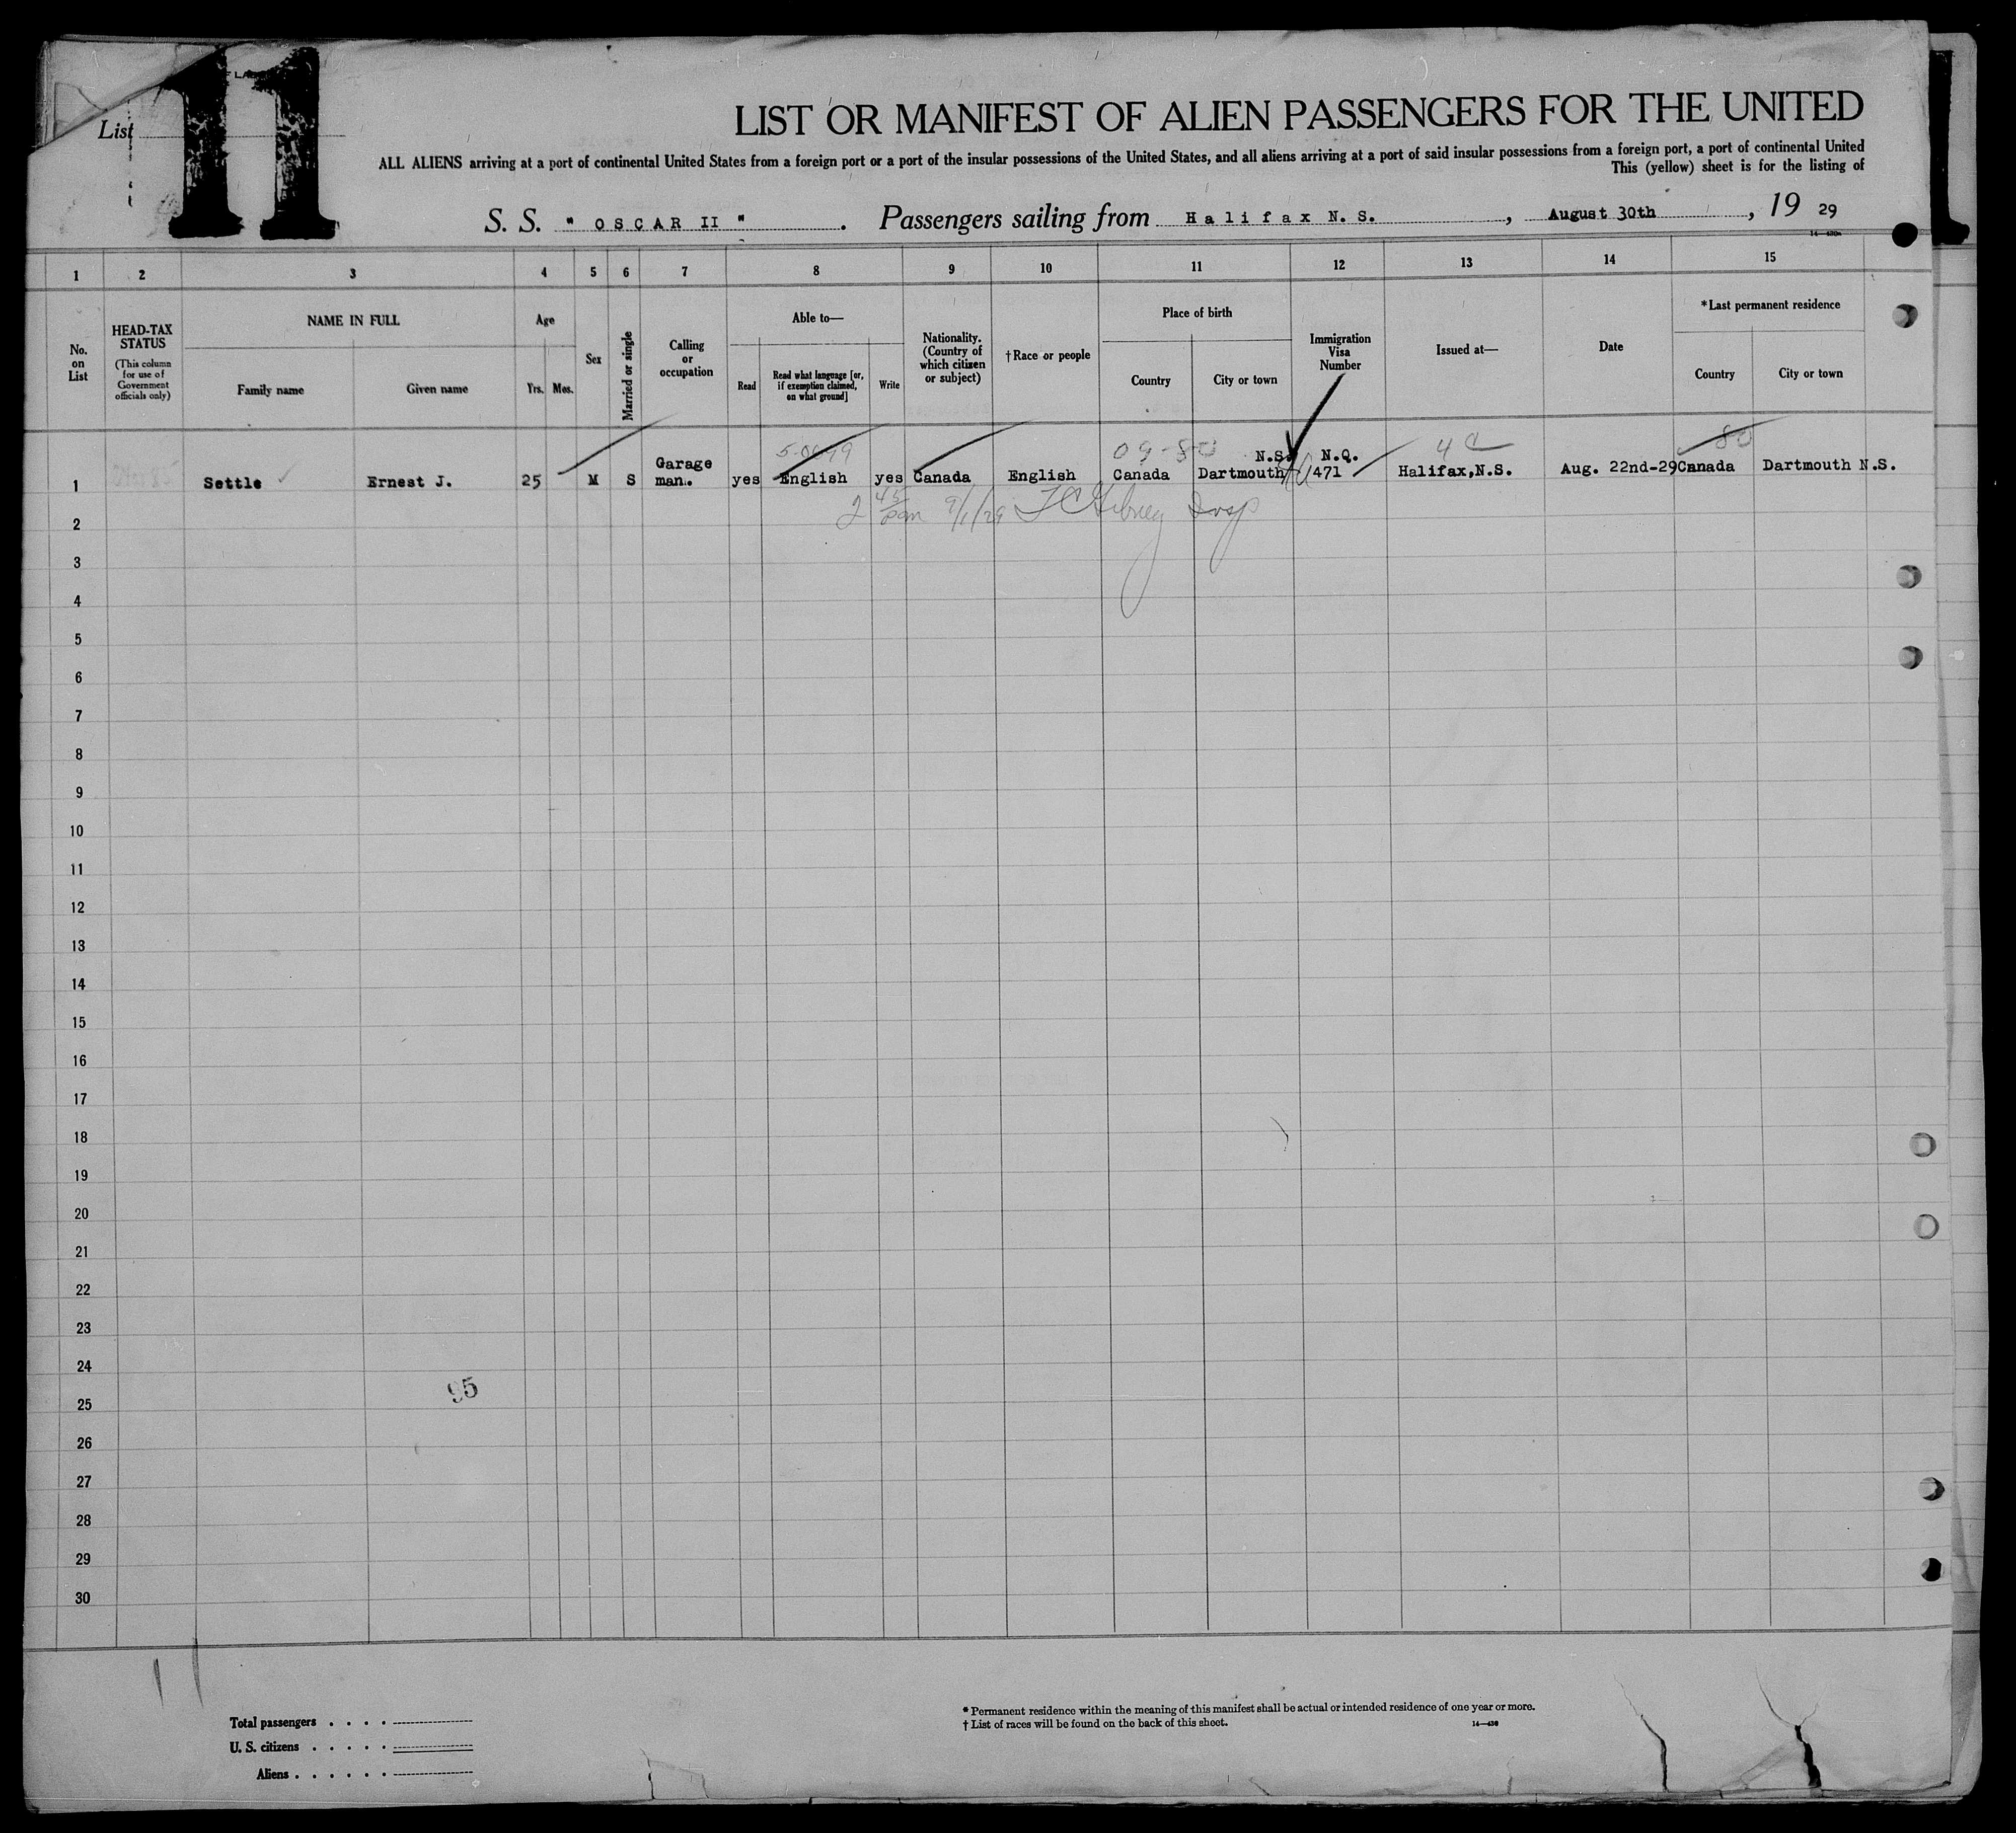 11
List
LIST OR MANIFEST OF ALIEN PASSENGERS FOR THE UNITED
ALL ALIENS arriving at a port of continental United States from a foreign port or a port of the insular possessions of the United States, and all aliens arriving at a port of said insular possessions from a foreign port, a port of continental United
This (yellow) sheet is for the listing of
S. S. " OSCAR II " . Passengers sailing from Halifax N. S. , August 30th , 19 29
1 2 3 4 5 6 7 8 9 10 11 12 13 14 15
No. on List
HEAD-TAX STATUS
(This column for use of Government officials only)
NAME IN FULL
Family name
Given name
Age
Yrs. Mos.
Sex
Married or single
Calling or occupation
Able to—
Read
Read what language [or, if exemption claimed, on what ground]
Write
Nationality. (Country of which citizen or subject)
† Race or people
Place of birth
Country
City or town
Immigration Visa Number
Issued at—
Date
*Last permanent residence
Country
City or town
09-80 4 C 80
1 Settle Ernest J. 25 M S Garage man. yes English yes Canada English Canada Dartmouth N.S. N.Q. 471 Halifax,N.S. Aug. 22nd-29 Canada Dartmouth N.S.
2 45 pm 9/1/29 Insp
2
3
4
5
6
7
8
9
10
11
12
13
14
15
16
17
18
19
20
21
22
23
24
95
25
26
27
28
29
30
Total passengers . . . .
U. S. citizens . . . . .
Aliens . . . . . .
* Permanent residence within the meaning of this manifest shall be actual or intended residence of one year or more.
† List of races will be found on the back of this sheet.
14—430